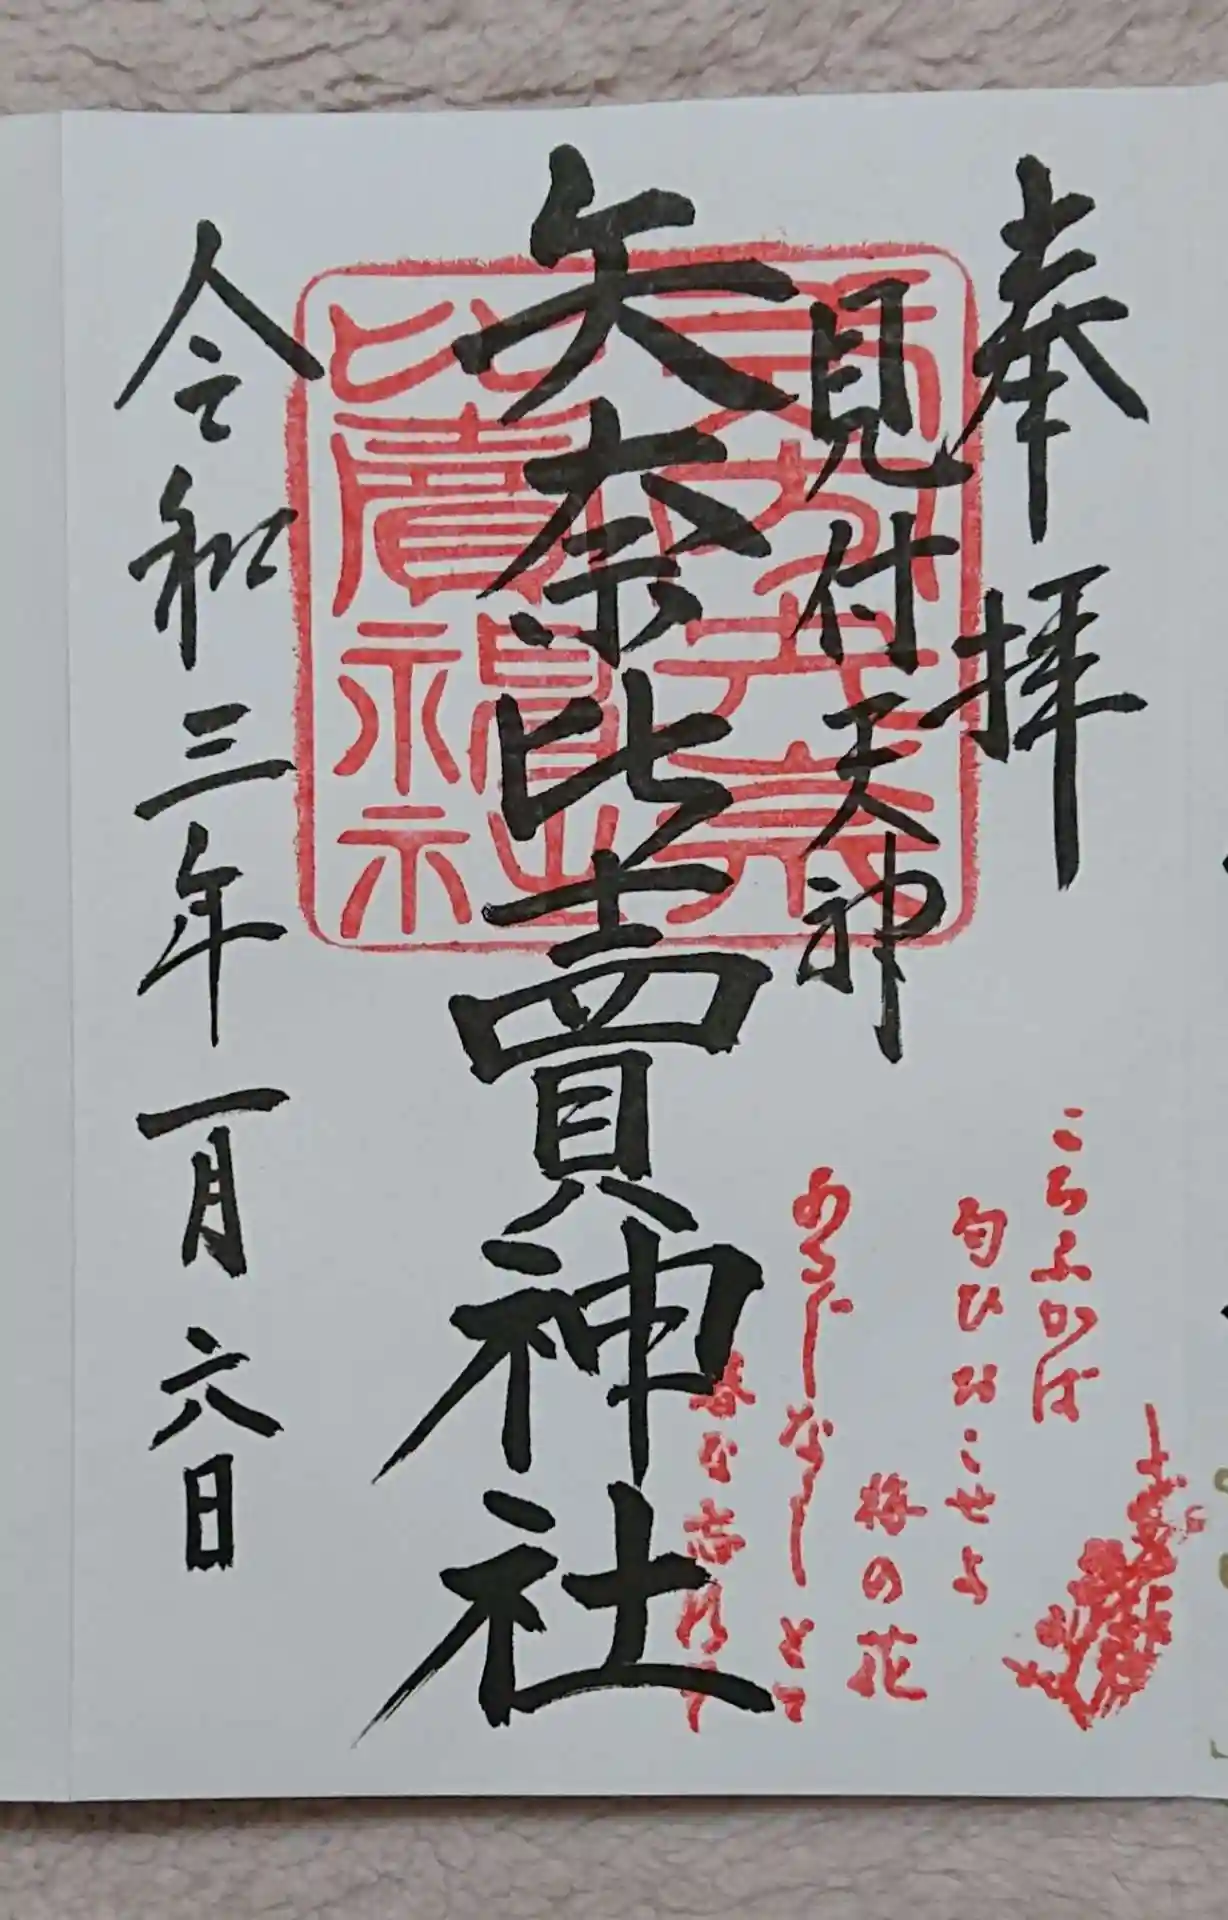 奉拝
見付天神
矢奈比賣神社
令和三年一月六日
こちふかば
匂ひおこせよ
梅の花
あるじなしとて
春な忘れそ